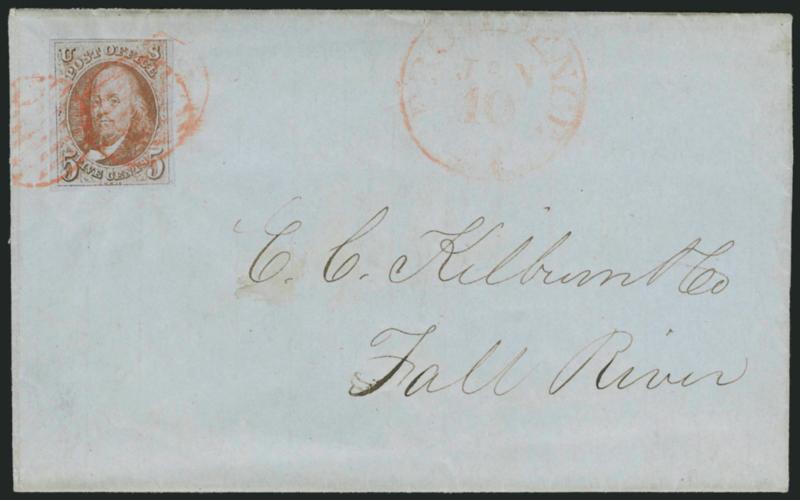 U S
POST OFFICE
FIVE CENTS
5 5
PROVIDENCE
JAN
10
E. C. Kilburn & Co
Fall River